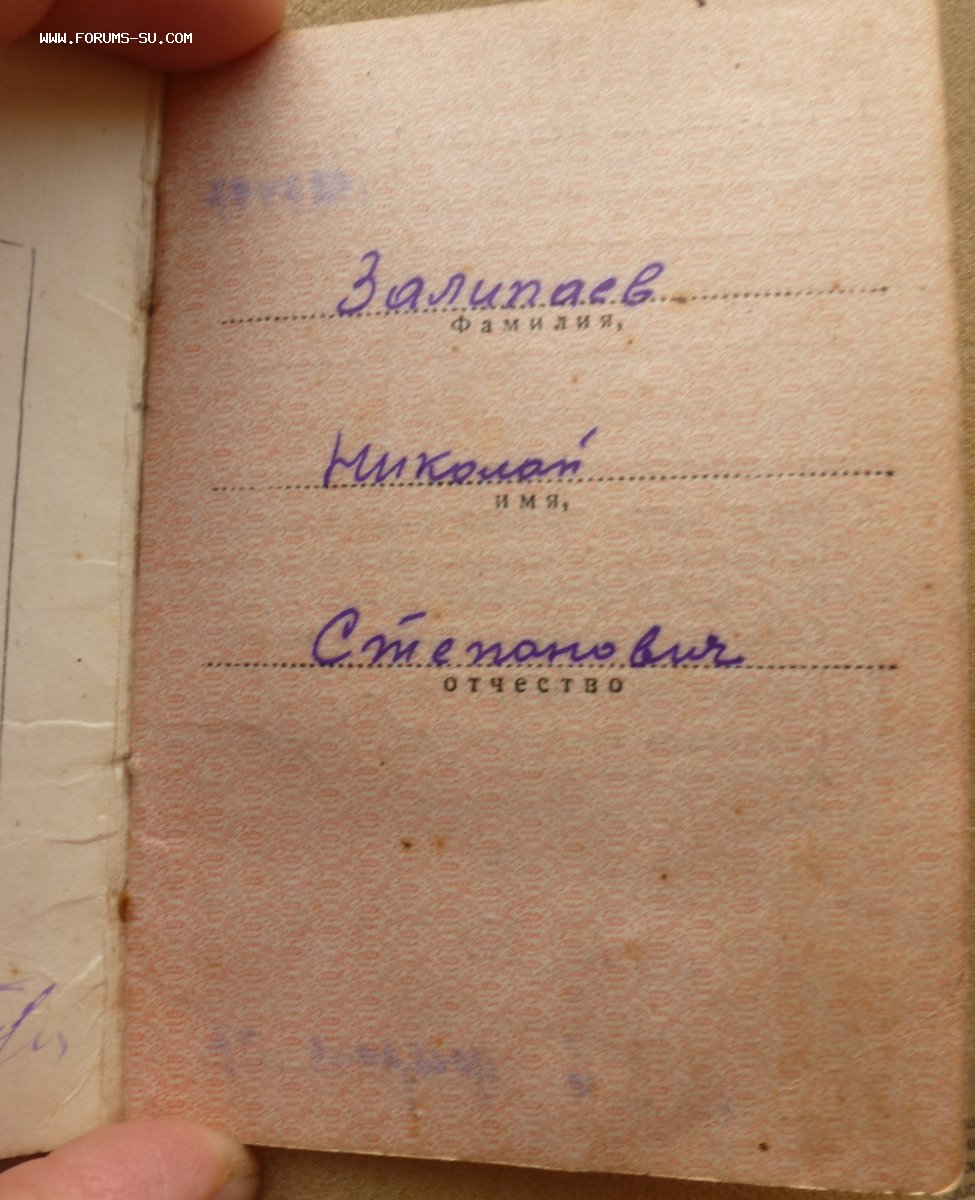 www.forums-su.com
Залипаев
Фамилия,
Николай
имя,
Степанович
отчество